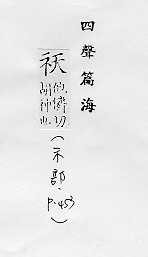 四聲篇海
祆
他憐切
胡神也
(示部.